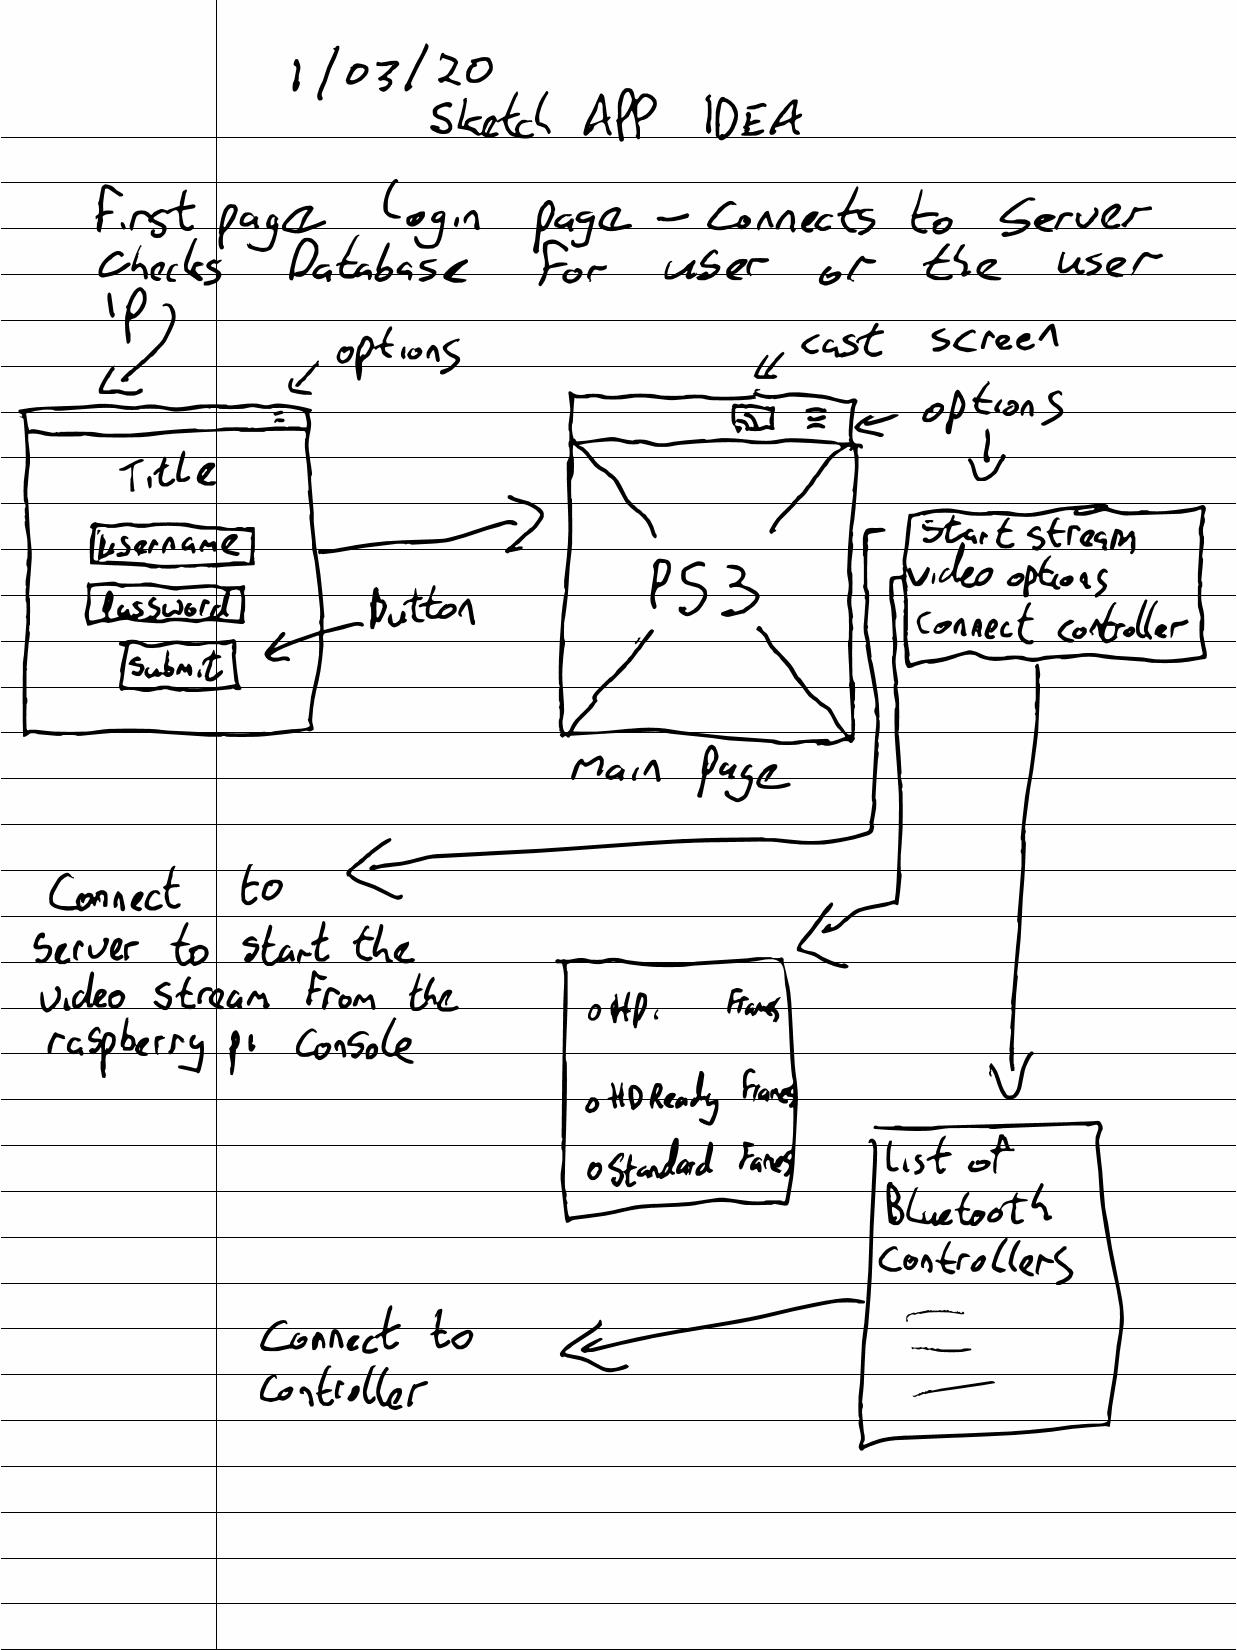 1/03/20
Sketch APP IDEA
First page Login page - Connects to Server
Checks Database For user or the user
IP
options
cast screen
options
Title
username
Password
submit
Button
PS3
Main Page
Start stream
video options
Connect controller
Connect to
server to start the
video stream From the
raspberry pi Console
HD. Frames
HD Ready Frames
Standard Fames
List of
Bluetooth
Controllers
Connect to
Controller